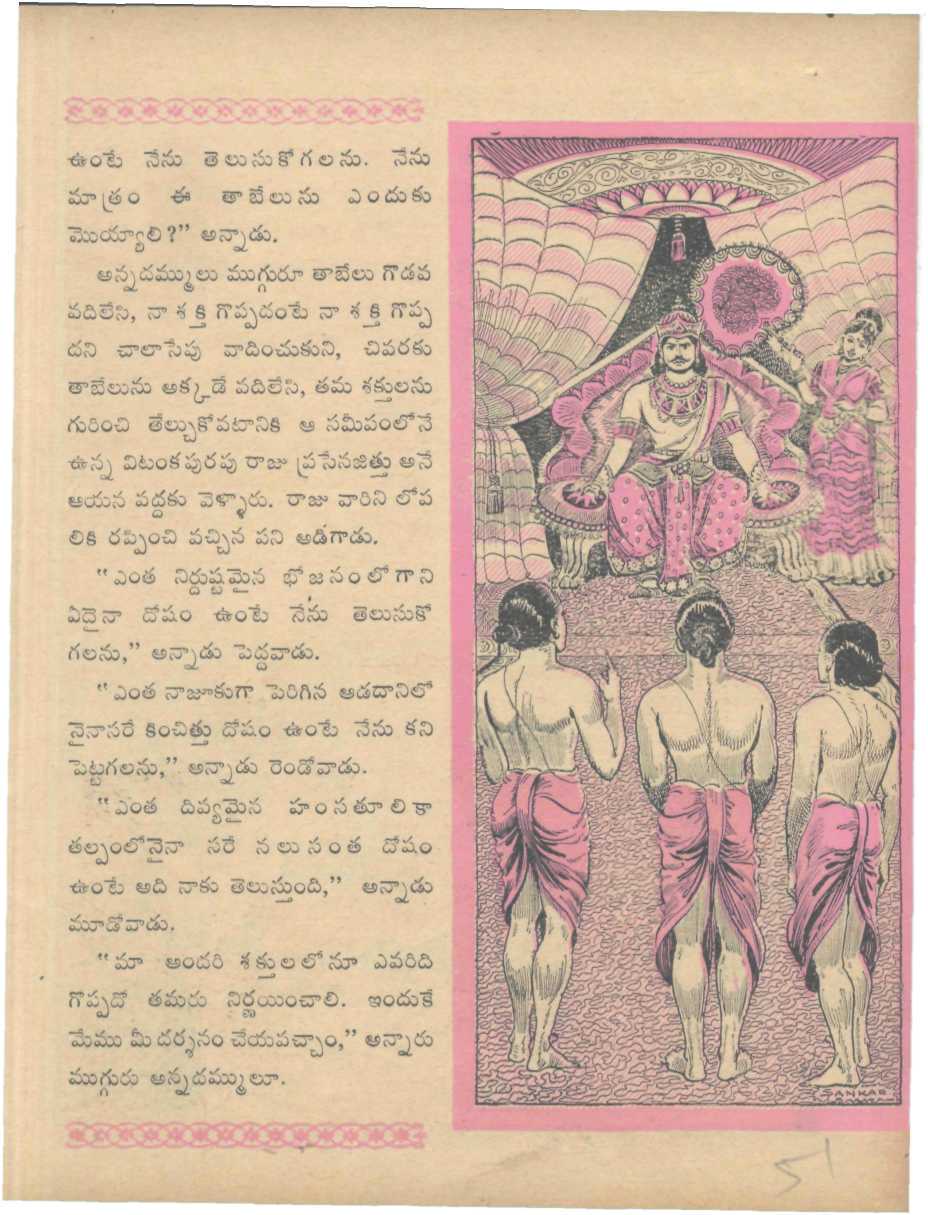 ఉంటే నేను తెలుసుకోగలను. నేను
మాత్రం ఈ తాబేలును ఎందుకు
మొయ్యాలి?” అన్నాడు.
అన్నదమ్ములు ముగ్గురూ తాబేలు గొడవ
వదిలేసి, నా శక్తి గొప్పదంటే నా శక్తి గొప్ప
దని చాలాసేపు వాదించుకుని, చివరకు
తాబేలును అక్కడే వదిలేసి, తమ శక్తులను
గురించి తేల్చుకోవటానికి ఆ సమీపంలోనే
ఉన్న విటంకపురపు రాజు ప్రసేనజిత్తు అనే
ఆయన వద్దకు వెళ్ళారు. రాజు వారిని లోప
లికి రప్పించి వచ్చిన పని అడిగాడు.
“ఎంత నిర్దుష్టమైన భోజనంలోగాని
ఏదైనా దోషం ఉంటే నేను తెలుసుకో
గలను,” అన్నాడు పెద్దవాడు.
“ఎంత నాజూకుగా పెరిగిన ఆడదానిలో
నైనాసరే కించిత్తు దోషం ఉంటే నేను కని
పెట్టగలను,” అన్నాడు రెండోవాడు.
“ఎంత దివ్యమైన హంసతూలికా
తల్పంలోనైనా సరే నలుసంత దోషం
ఉంటే అది నాకు తెలుస్తుంది,” అన్నాడు
మూడోవాడు.
“మా అందరి శక్తులలోనూ ఎవరిది
గొప్పదో తమరు నిర్ణయించాలి. ఇందుకే
మేము మీ దర్శనం చేయవచ్చాం,” అన్నారు
ముగ్గురు అన్నదమ్ములూ.
SANKAR
51